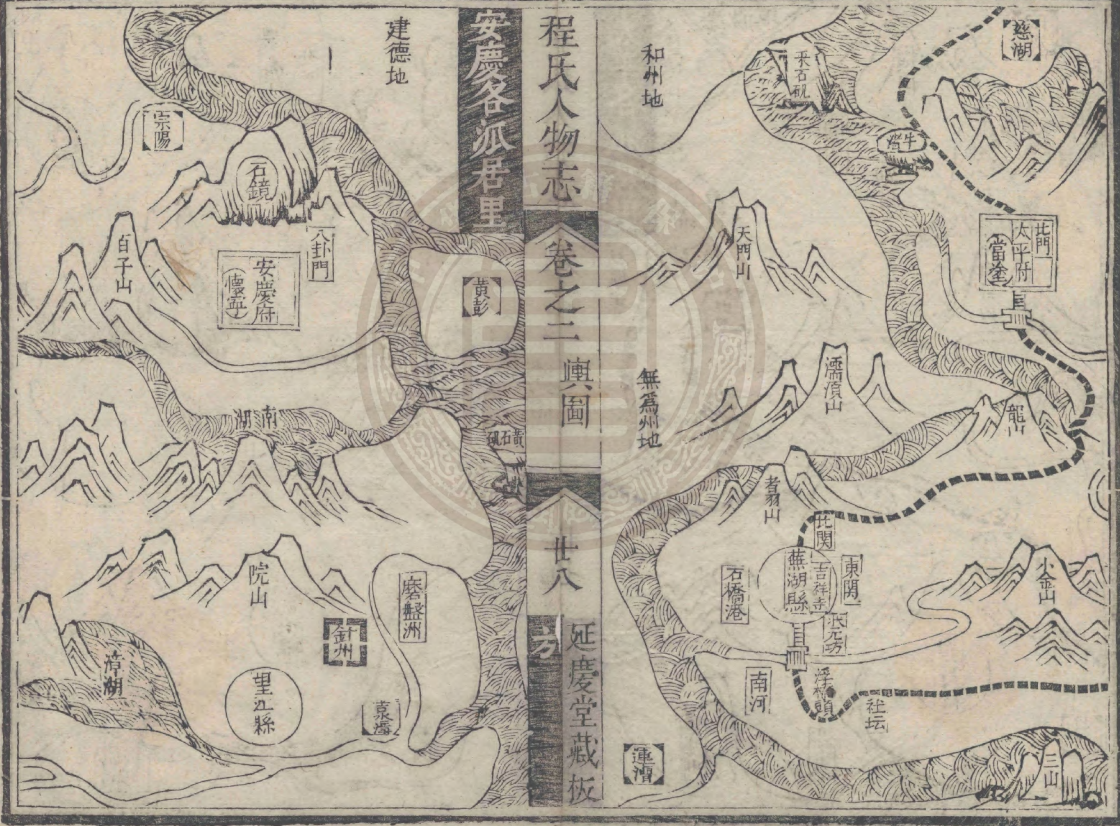 慈湖
采石磯
和州地
牛渚
北門
太平府
當塗
天門山
濡頂山
無為州地
龍山
者羽山
北関
東関
蕪湖縣
吉祥寺
石橋港
火金山
南河
浮橋頭
社坛
運漕
三山
程氏人物志
卷之二
輿圖
廿八
延慶堂藏板
安慶各派居里
建德地
宗陽
石鏡
八卦門
百子山
安慶府
懷寧
黃彭
南湖
黃石磯
院山
磨盤洲
針州
漳湖
望江縣